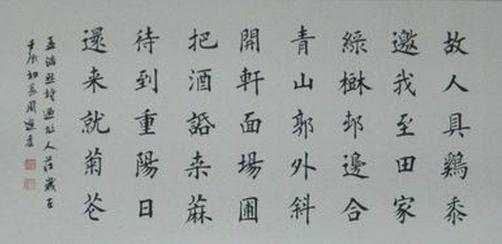 故人具鷄黍
邀我至田家
綠樹邨邊合
青山郭外斜
開軒面場圃
把酒話桒蔴
待到重陽日
還来就菊花
孟浩然詩過故人莊歲在
初夏周